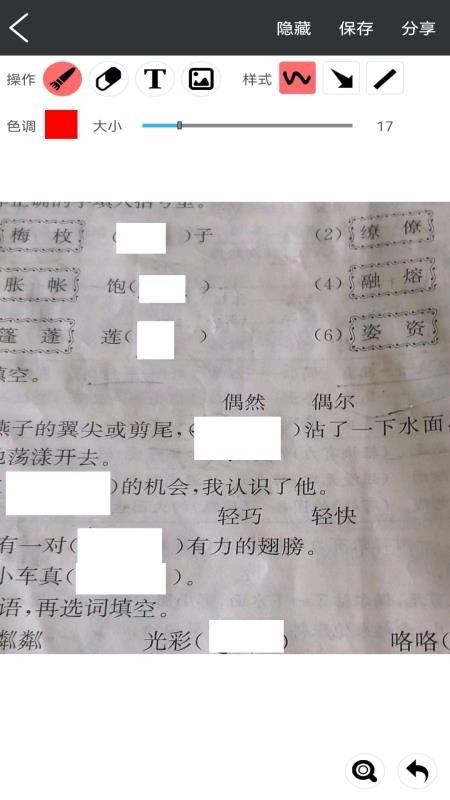 隐藏 保存 分享
操作 T 样式
色调 大小 17
正确的字填入括号里。
梅 枚 ( )子 (2) 缭 僚
胀 帐 饱( ) (4) 融 熔
篷 蓬 莲( ) (6) 姿 资
填空。
偶然 偶尔
燕子的翼尖或剪尾,( )沾了一下水面
地荡漾开去。
)的机会,我认识了他。
轻巧 轻快
有一对( )有力的翅膀。
小车真( )。
语,再选词填空。
粼粼 光彩( ) 咯咯(